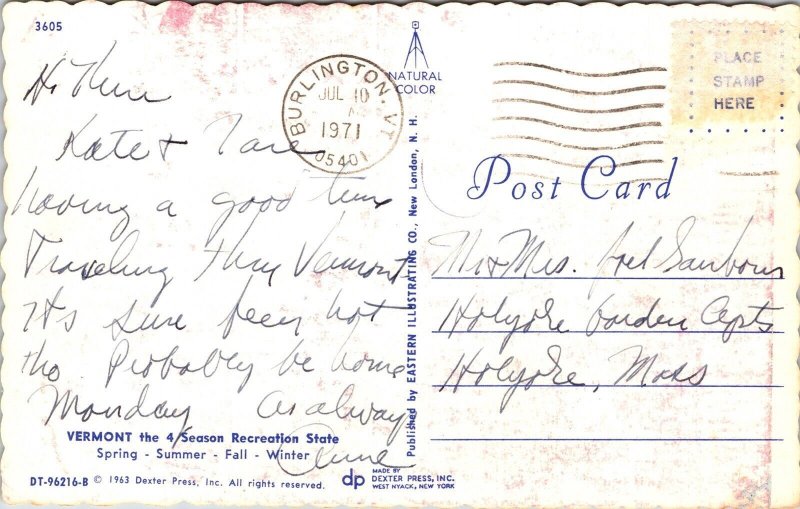 3605
Hi There
Kate +
having a good time
Traveling thru Vermont
It's sure been hot
tho. Probably be home
Monday As always
Anne
VERMONT the 4 Season Recreation State
Spring - Summer - Fall - Winter
DT-96216-B © 1963 Dexter Press, Inc. All rights reserved.
BURLINGTON, VT
JUL 10
1971
05401
NATURAL
COLOR
Published by EASTERN ILLUSTRATING CO., New London, N. H.
dp MADE BY
DEXTER PRESS, INC.
WEST NYACK, NEW YORK
PLACE
STAMP
HERE
Post Card
Mr + Mrs. Sanbourn
Holyoke Garden Apts
Holyoke, Mass